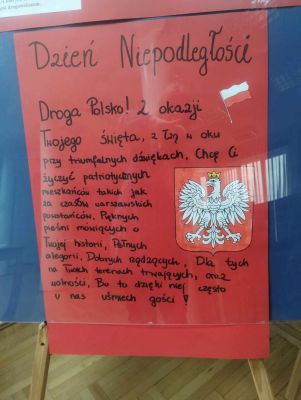 Dzień Niepodległości
Droga Polsko! Z okazji
Twojego święta, z łzą w oku
przy triumfalnych dźwiękach, Chcę Ci
życzyć patriotycznych
mieszkańców takich jak
za czasów warszawskich
powstańców, Pięknych
pieśni mówiących o
Twojej historii, Pełnych
alegorii, Dobrych rządzących, Dla tych
na Twoich terenach trwających, oraz
wolności, Bo to dzięki niej często
u nas uśmiech gości!